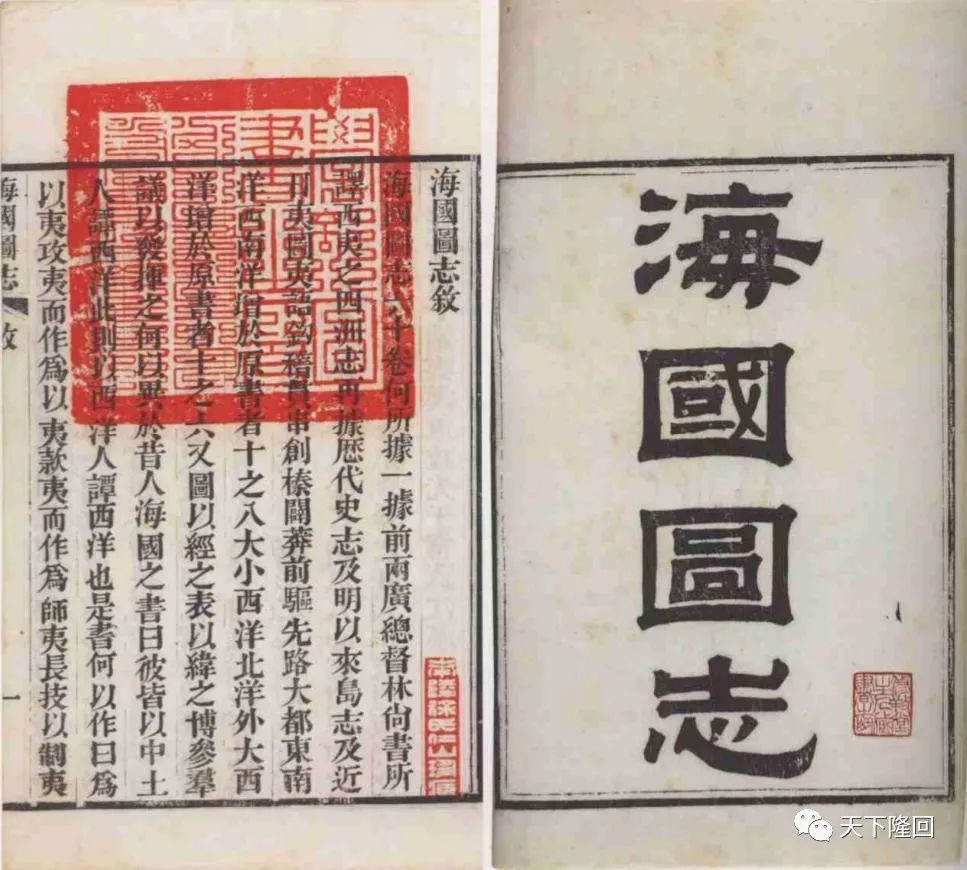 海國圖志
海國圖志敘
海國圖志六十卷何所據一據前兩廣總督林尚書所
譯西夷之四洲志再據歷代史志及明以來島志及近
日夷圖夷語鈎稽貫串創榛闢莽前驅先路大都東南
洋西南洋增於原書者十之八大小西洋北洋外大西
洋增於原書者十之六又圖以經之表以緯之博參羣
議以發揮之何以異於昔人海國之書曰彼皆以中土
人譚西洋此則以西洋人譚西洋也是書何以作曰爲
以夷攻夷而作爲以夷款夷而作爲師夷長技以制夷
海國圖志 敘 一
天下隆回